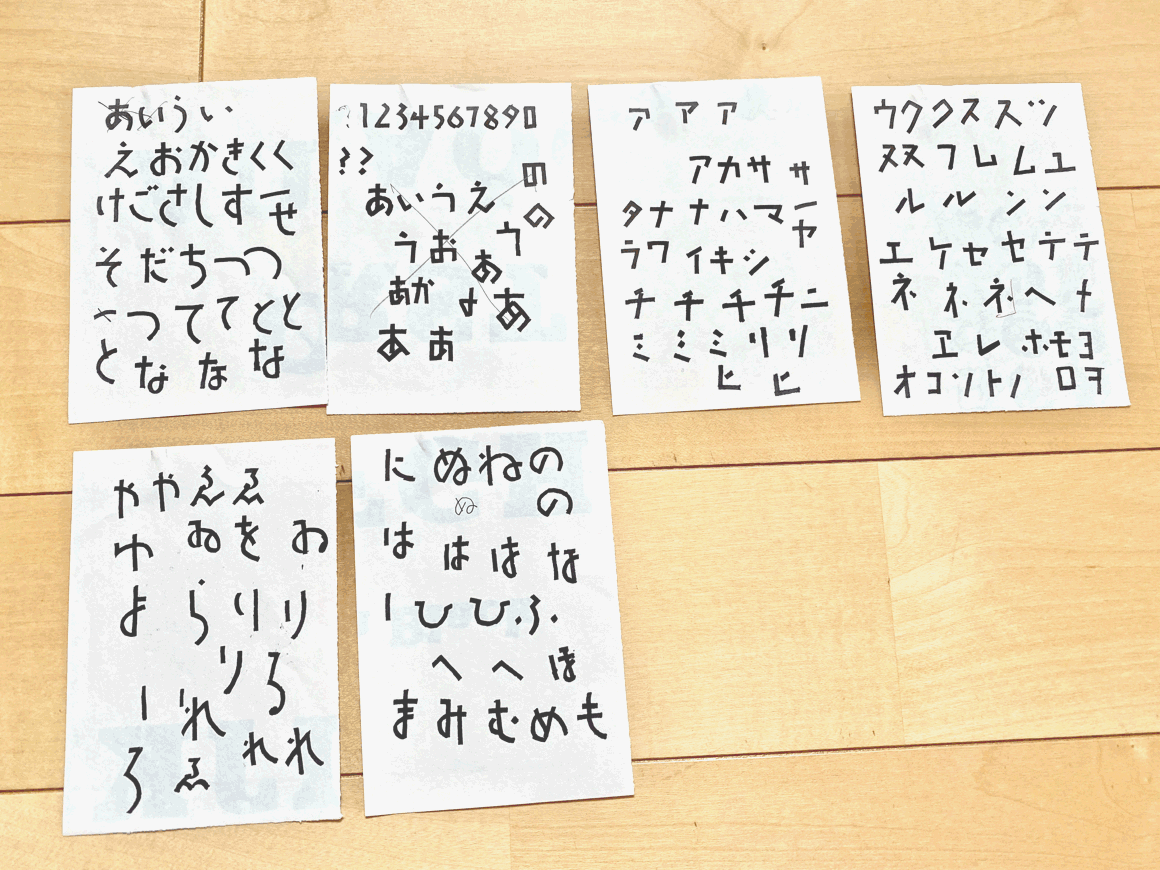 あいうい
えおかきくく
けごさしすせ
そだちつつ
つててとと
となゝな
1234567890
??
の
あいうえ
の
うおう
あ
あか よ あ
ああ
アアア
アカササ
タナナハマ
ヤ
ラワイキシ
チチチチニ
ミミミリリ
ヒヒ
ウククススツ
ヌヌフレムユ
ルルシン
エケセセテテ
ネネネヘメ
ヱレホモヨ
オコソトノロヲ
ややゑゑ
ゆゐをお
よらりり
りろ
れ
れれ
ろゑ
にぬねの
ぬの
はははな
ひひふ
へへほ
まみむめも